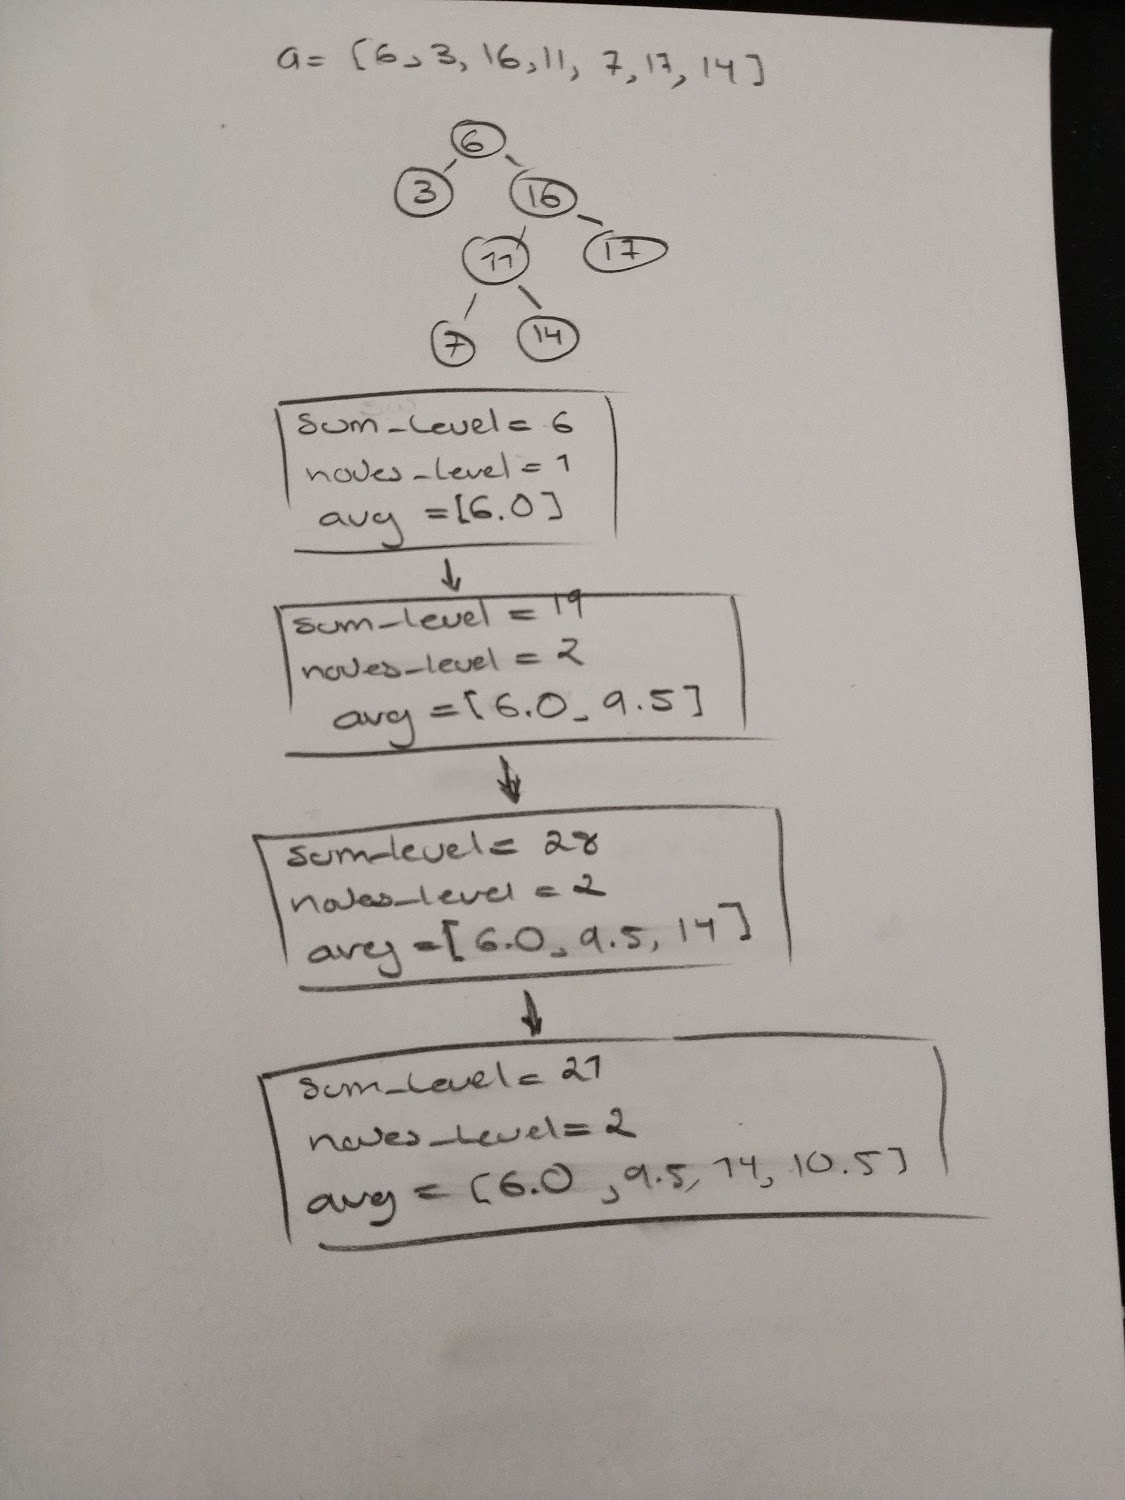 a= [6, 3, 16, 11, 7, 17, 14]
6
3 16
11 17
7 14
sum_level= 6
nodes_level= 1
avg =[6.0]
sum_level = 19
nodes_level = 2
avg =[6.0, 9.5]
sum_level= 28
nodes_level = 2
avg =[6.0, 9.5, 14]
sum_level= 21
nodes_level= 2
avg = [6.0, 9.5, 14, 10.5]